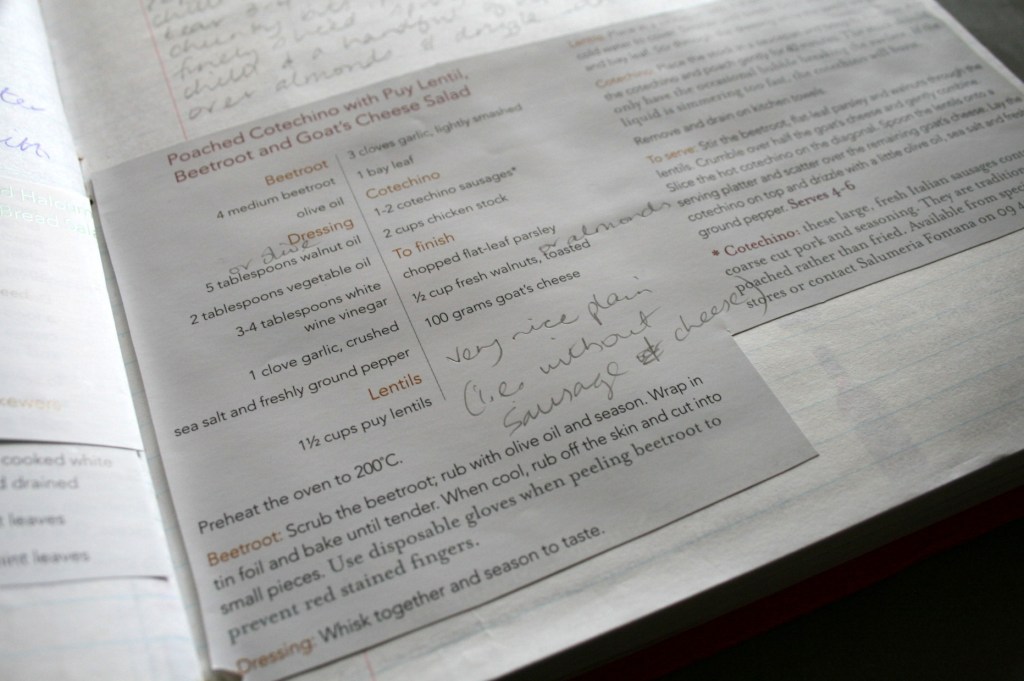 over almonds & drizzle
Poached Cotechino with Puy Lentil,
Beetroot and Goat's Cheese Salad
Beetroot
4 medium beetroot
olive oil
Dressing
or olive
5 tablespoons walnut oil
2 tablespoons vegetable oil
3-4 tablespoons white
wine vinegar
1 clove garlic, crushed
sea salt and freshly ground pepper
Lentils
1½ cups puy lentils
3 cloves garlic, lightly smashed
1 bay leaf
Cotechino
1-2 cotechino sausages*
2 cups chicken stock
To finish
chopped flat-leaf parsley
or almonds
½ cup fresh walnuts, toasted
100 grams goat's cheese
very nice plain
(i.e. without
sausage & cheese)
Preheat the oven to 200°C.
Beetroot: Scrub the beetroot; rub with olive oil and season. Wrap in
tin foil and bake until tender. When cool, rub off the skin and cut into
small pieces. Use disposable gloves when peeling beetroot to
prevent red stained fingers.
Dressing: Whisk together and season to taste.
Lentils: Place
Cotechino: Place the
the cotechino and poach gently for
only have the occasional bubble
liquid is simmering too fast the cotechino will
Remove and drain on kitchen towels.
To serve: Stir the beetroot, flat leaf parsley and walnuts through the
lentils. Crumble over half the goat's cheese and gently combine.
Slice the hot cotechino on the diagonal. Spoon the lentils onto a
serving platter and scatter over the remaining goat's cheese. Lay the
cotechino on top and drizzle with a little olive oil, sea salt and
ground pepper. Serves 4-6
* Cotechino: these large, fresh Italian sausages
coarse cut pork and seasoning. They are
poached rather than fried. Available from
stores or contact Salumeria Fontana on 09 4
cooked white
drained
leaves
leaves